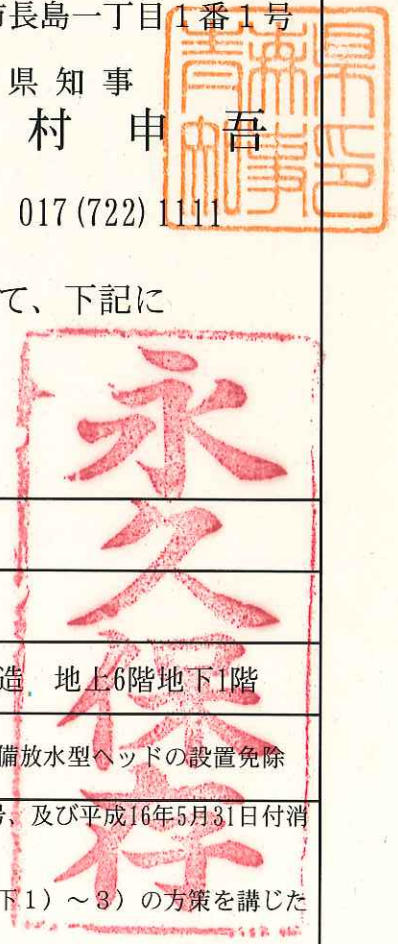 市長島一丁目1番1号
県知事
村 申 吾
017(722)1111
青森県知事印
て、下記に
永久保存
造 地上6階地下1階
備放水型ヘッドの設置免除
号、及び平成16年5月31日付消
下1)~3)の方策を講じた